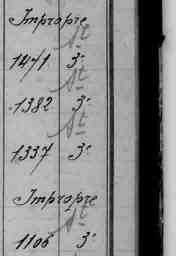 Impropre
St
1471 3e
St
1382 3e
St
1337 3e
Impropre
St
1106 3e